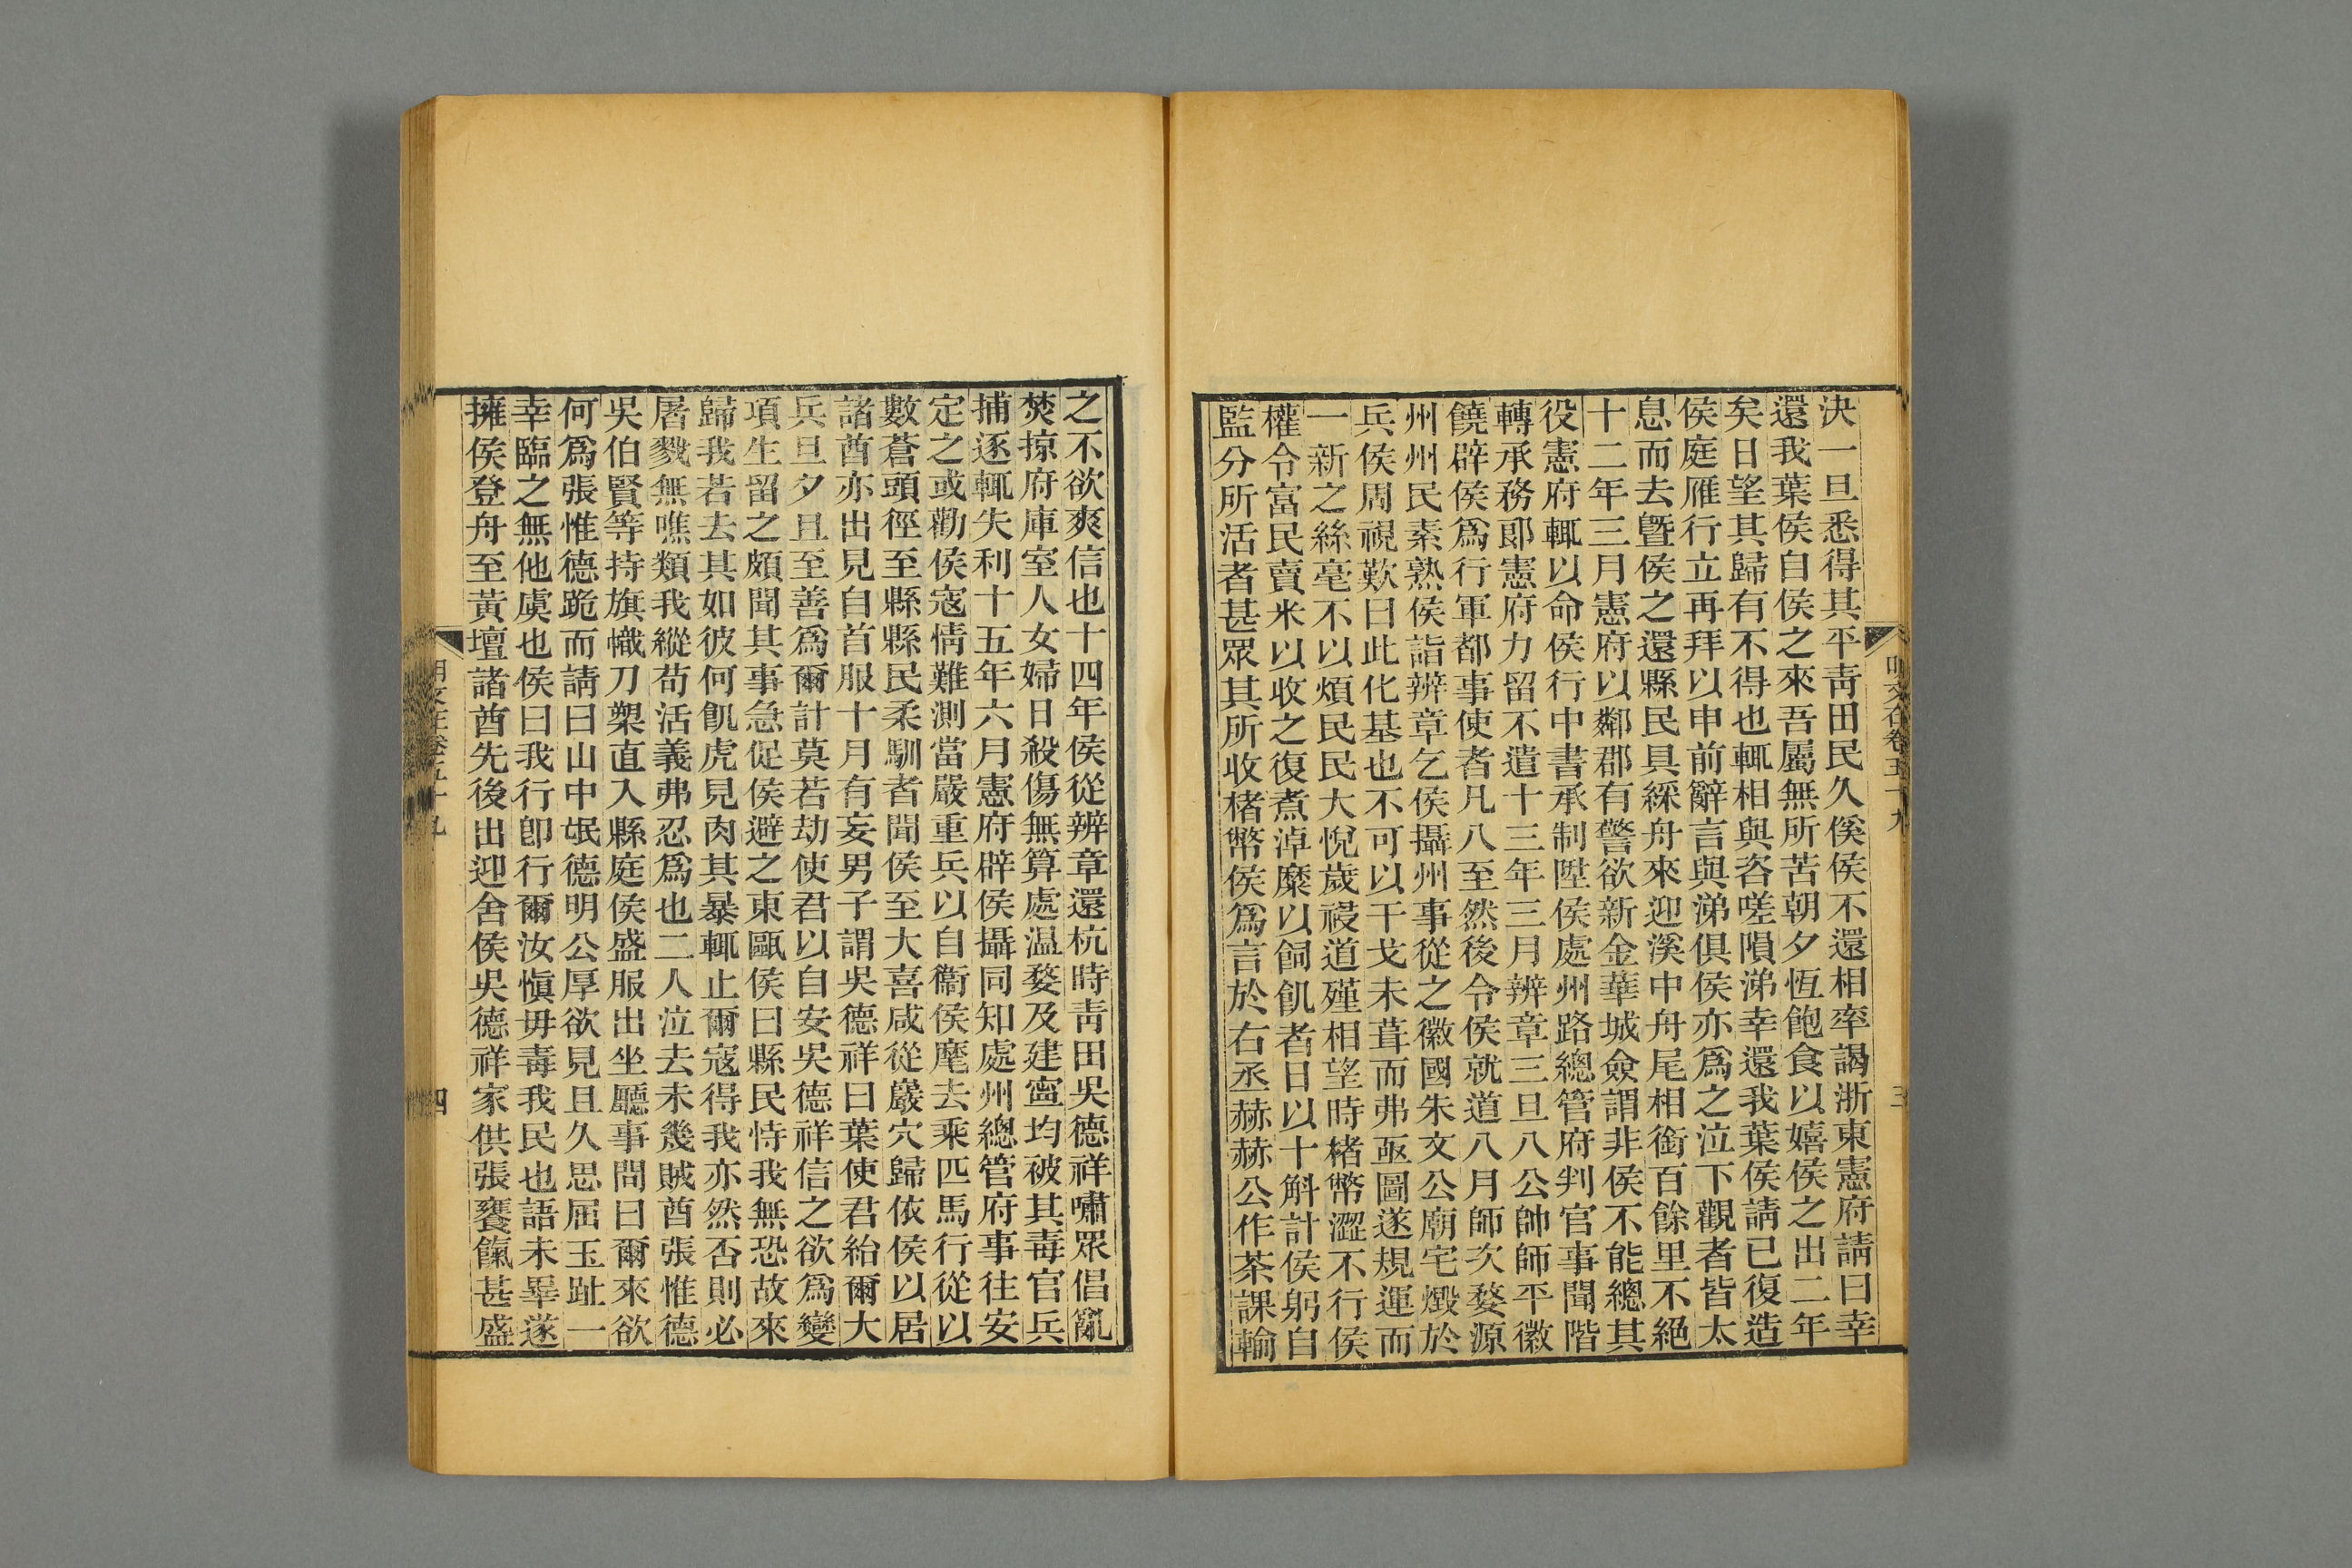 決一旦悉得其平靑田民久傒侯不還相率謁浙東憲府請曰幸
還我葉侯自侯之來吾屬無所苦朝夕恆飽食以嬉侯之出二年
矣日望其歸有不得也輒相與咨嗟隕涕幸還我葉侯請已復造
侯庭雁行立再拜以申前辭言與涕俱侯亦爲之泣下觀者皆太
息而去曁侯之還縣民具綵舟來迎溪中舟尾相銜百餘里不絕
十二年三月憲府以鄰郡有警欲新金華城僉謂非侯不能總其
役憲府輒以命侯行中書承制陞侯處州路總管府判官事聞階
轉承務郞憲府力留不遣十三年三月辨章三旦八公帥師平徽
饒辟侯爲行軍都事使者凡八至然後令侯就道八月師次婺源
州州民素熟侯詣辨章乞侯攝州事從之徽國朱文公廟宅燬於
兵侯周視歎曰此化基也不可以干戈未葺而弗亟圖遂規運而
一新之絲毫不以煩民民大悅歲祲道殣相望時楮幣澀不行侯
權令富民賣米以收之復煮淖糜以飼飢者日以十斛計侯躬自
監分所活者甚眾其所收楮幣侯爲言於右丞赫赫公作茶課輸
三
之不欲爽信也十四年侯從辨章還杭時靑田吳德祥嘯眾倡亂
焚掠府庫室人女婦日殺傷無算處温婺及建寧均被其毒官兵
捕逐輒失利十五年六月憲府辟侯攝同知處州總管府事往安
定之或勸侯寇情難測當嚴重兵以自衞侯麾去乘匹馬行從以
數蒼頭徑至縣縣民柔馴者聞侯至大喜咸從巖穴歸依侯以居
諸酋亦出見自首服十月有妄男子謂吳德祥曰葉使君紿爾大
兵旦夕且至善爲爾計莫若劫使君以自安吳德祥信之欲爲變
項生留之頗聞其事急促侯避之東甌侯曰縣民恃我無恐故來
歸我若去其如彼何飢虎見肉其暴輒止爾寇得我亦然否則必
屠戮無噍類我縱苟活義弗忍爲也二人泣去未幾賊酋張惟德
吳伯賢等持旗幟刀槊直入縣庭侯盛服出坐廳事問曰爾來欲
何爲張惟德跪而請曰山中氓德明公厚欲見且久思屈玉趾一
幸臨之無他虞也侯曰我行卽行爾汝愼毋毒我民也語未畢遂
擁侯登舟至黃壇諸酋先後出迎舍侯吳德祥家供張饔餼甚盛
四